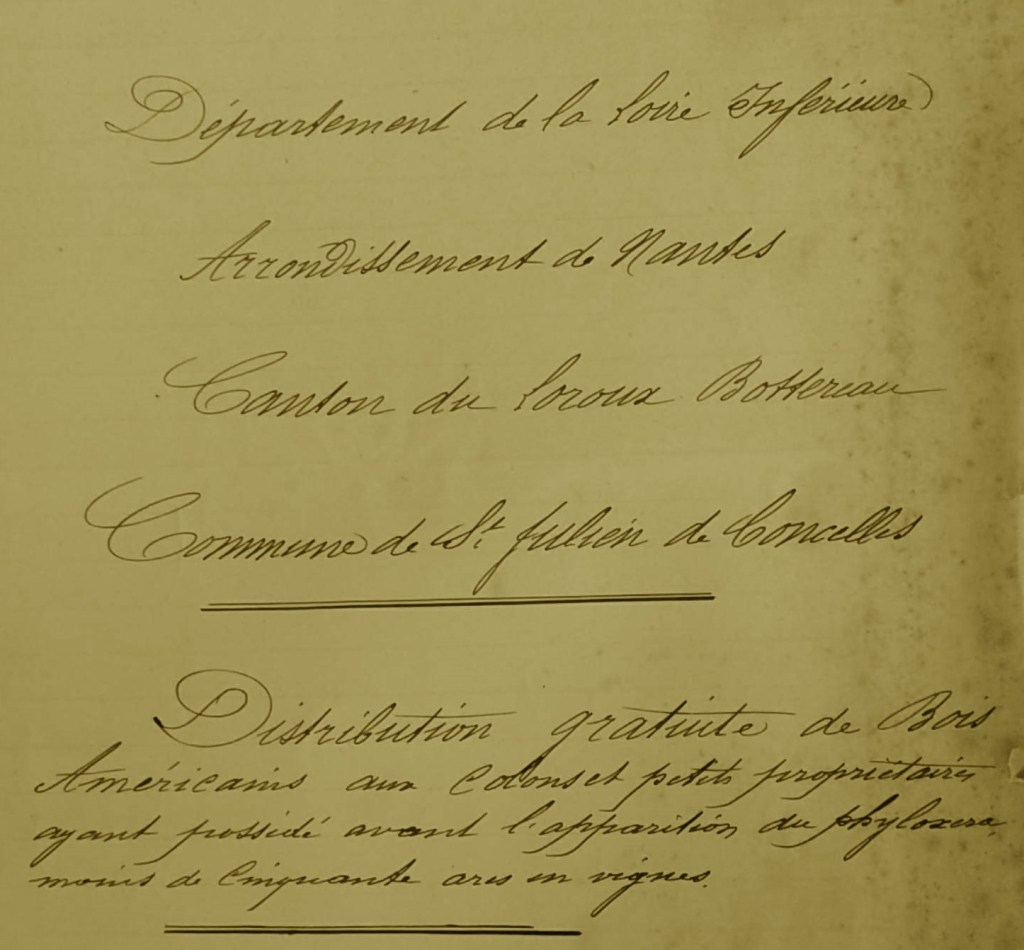 Département de la Loire Inférieure
Arrondissement de Nantes
Canton du Loroux Bottereau
Commune de St Julien de Concelles
Distribution gratuite de Bois
Américains aux Colons et petits propriétaires
ayant possédé avant l'apparition du phyloxera
moins de Cinquante ares en vignes.